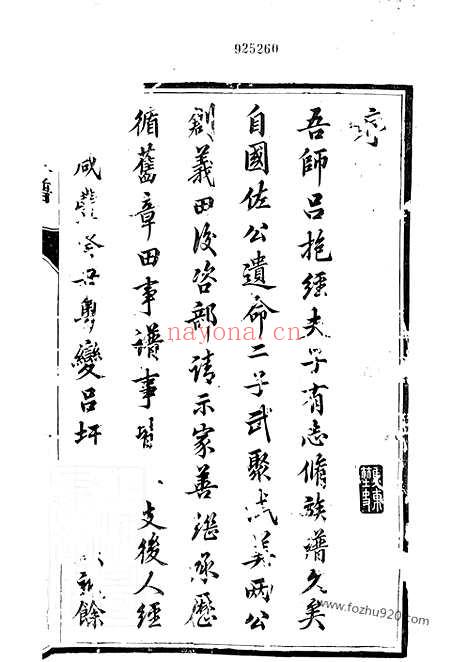 925260
序
吾師呂抱經夫子有志脩族譜久矣
自國佐公遺命二子武聚武英兩公
創義田後咨部請示家善繼承歷
循舊章田事譜事 支後人經
咸豐癸丑粵變呂圩 餘
nayona.cn
www.fozhu920.com